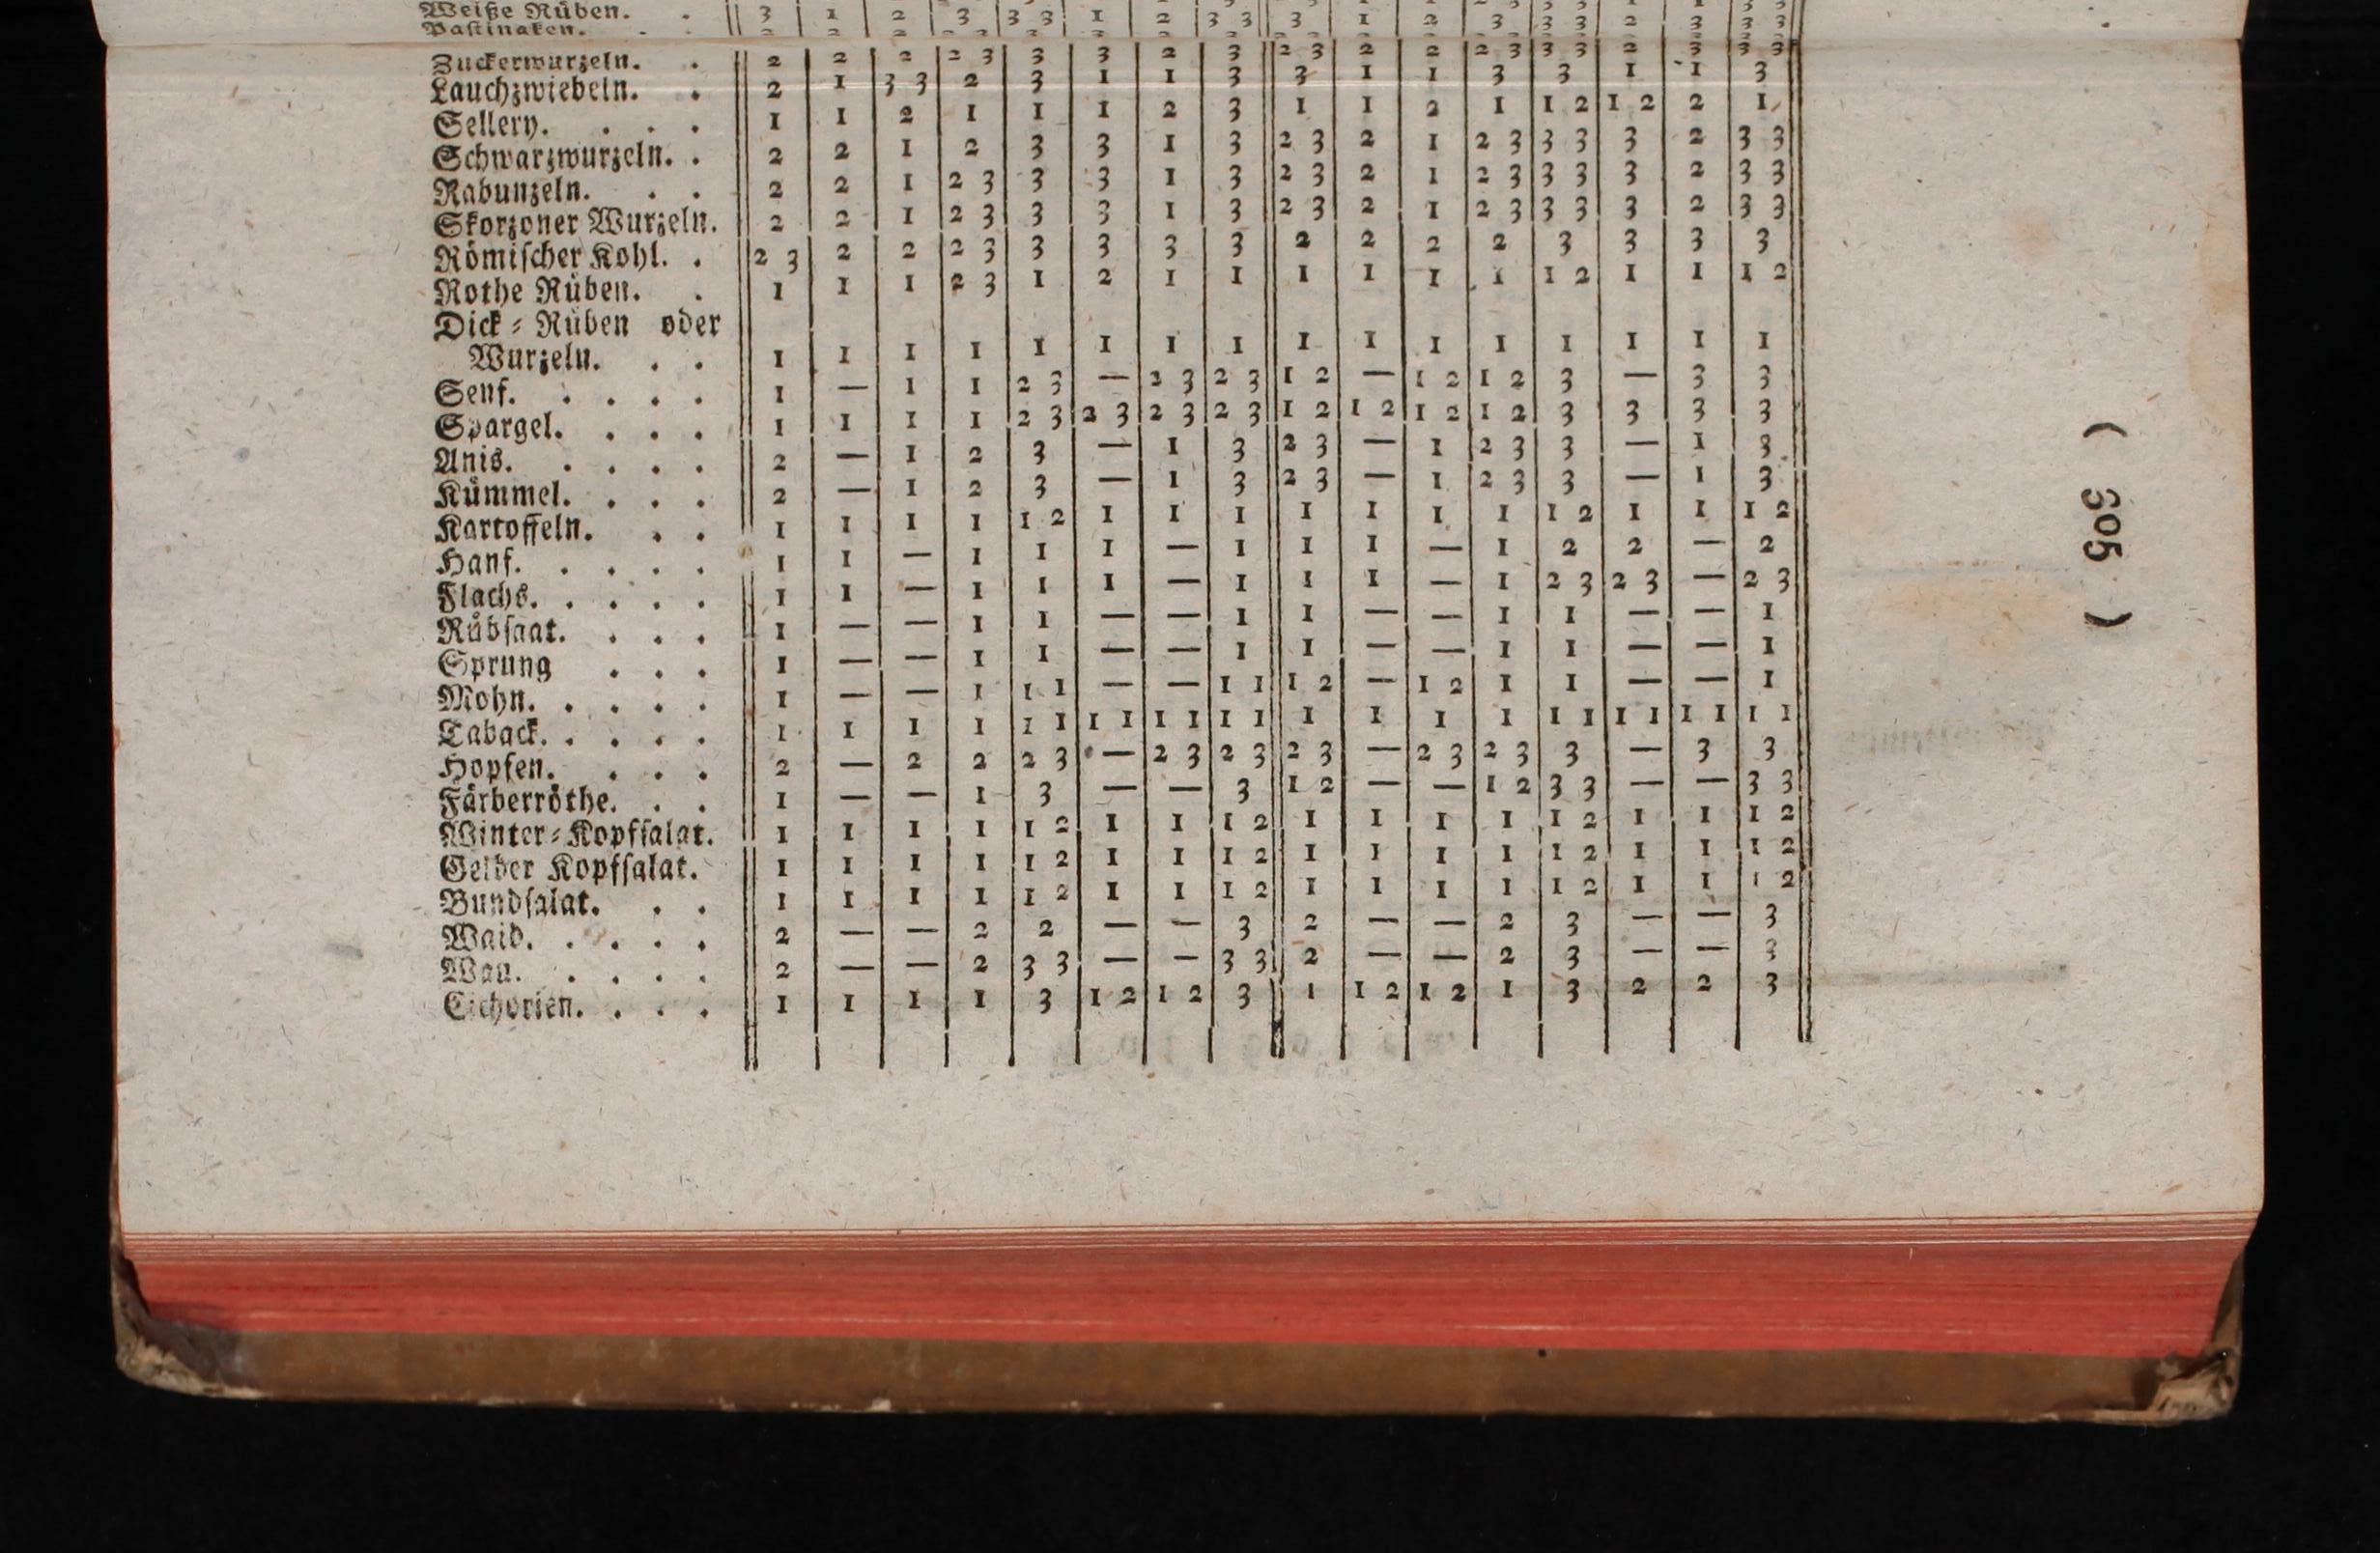 Weiße Rüben. . 3 1 2 3 3 3 1 2 3 3 3 1 2 3 3 3 2 3 3 3
Pastinaken. . .
Zuckerwurzeln. . 2 2 2 2 3 3 3 2 3 2 3 2 2 2 3 3 3 2 3 3 3
Lauchzwiebeln. . 2 1 3 3 2 3 1 1 3 3 1 1 3 3 1 1 3
Sellery. . . . 1 1 2 1 1 1 2 3 1 1 2 1 1 2 1 2 2 1
Schwarzwurzeln. . 2 2 1 2 3 3 1 3 2 3 2 1 2 3 3 3 3 2 3 3
Rabunzeln. . . 2 2 1 2 3 3 3 1 3 2 3 2 1 2 3 3 3 3 2 3 3
Skorzoner Wurzeln. 2 2 1 2 3 3 3 1 3 2 3 2 1 2 3 3 3 3 2 3 3
Römischer Kohl. . 2 3 2 2 2 3 3 3 3 3 2 2 2 2 3 3 3 3
Rothe Rüben. . 1 1 1 2 3 1 2 1 1 1 1 1 1 1 2 1 1 1 2
Dick - Rüben oder
Wurzeln. . . 1 1 1 1 1 1 1 1 1 1 1 1 1 1 1 1
Senf. . . . . 1 — 1 1 2 3 — 2 3 2 3 1 2 — 1 2 1 2 3 — 3 3
Spargel. . . . 1 1 1 1 2 3 2 3 2 3 2 3 1 2 1 2 1 2 1 2 3 3 3 3
Anis. . . . . 2 — 1 2 3 — 1 3 2 3 — 1 2 3 3 — 1 3
Kümmel. . . . 2 — 1 2 3 — 1 3 2 3 — 1 2 3 3 — 1 3
Kartoffeln. . . 1 1 1 1 1 2 1 1 1 1 1 1 1 1 2 1 1 1 2
Hanf. . . . . 1 1 — 1 1 1 — 1 1 1 — 1 2 2 — 2
Flachs. . . . . 1 1 — 1 1 1 — 1 1 1 — 1 2 3 2 3 — 2 3
Rübsaat. . . . 1 — — 1 1 — — 1 1 — — 1 1 — — 1
Sprung . . . 1 — — 1 1 — — 1 1 — — 1 1 — — 1
Mohn. . . . . 1 — — 1 1 1 — — 1 1 1 2 — 1 2 1 1 — — 1
Taback. . . . . 1 1 1 1 1 1 1 1 1 1 1 1 1 1 1 1 1 1 1 1 1 1 1 1
Hopfen. . . . 2 — 2 2 2 3 — 2 3 2 3 2 3 — 2 3 2 3 3 — 3 3
Färberröthe. . . 1 — — 1 3 — — 3 1 2 — — 1 2 3 3 — — 3 3
Winter-Kopfsalat. 1 1 1 1 1 2 1 1 1 2 1 1 1 1 1 2 1 1 1 2
Gelber Kopfsalat. 1 1 1 1 1 2 1 1 1 2 1 1 1 1 1 2 1 1 1 2
Bundsalat. . . 1 1 1 1 1 2 1 1 1 2 1 1 1 1 1 2 1 1 1 2
Waid. . . . . 2 — — 2 2 — — 3 2 — — 2 3 — — 3
Wau. . . . . 2 — — 2 3 3 — — 3 3 2 — — 2 3 — — 3
Cichorien. . . . 1 1 1 1 3 1 2 1 2 3 1 1 2 1 2 1 3 2 2 3
( 505 )